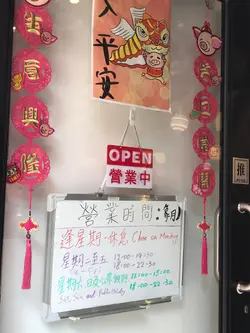 入
平
安
生
意
興
隆
OPEN
營業中
營業時間:
逢星期一休息 Close on Monday
星期二至五 12:00-14:30
18:00-22:30
星期六、日及公眾假期 12:00-15:00
Sat, Sun and Public Holiday 18:00-22:30